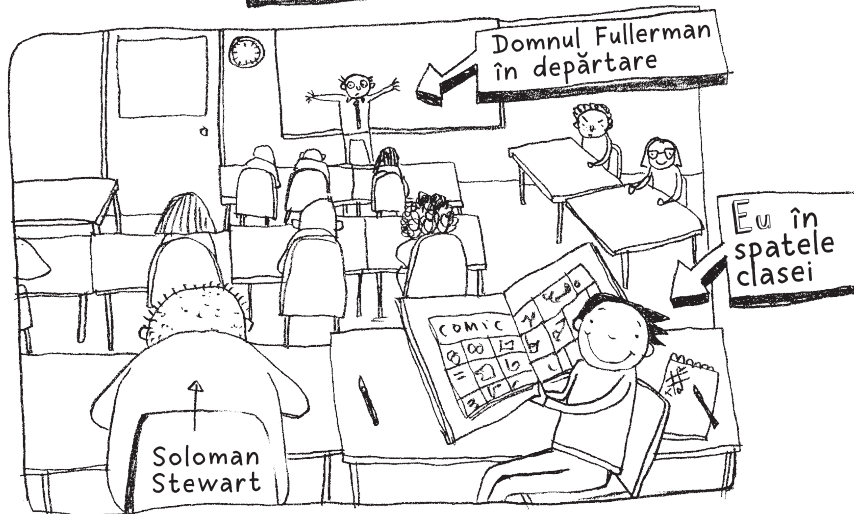 Domnul Fullerman
în depărtare
Eu în
spatele
clasei
COMIC
Soloman
Stewart